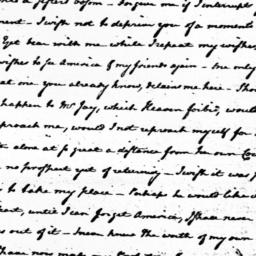 a sisters bosom - forgive me if I interrupt
ment - I wish not to deprive you of a moments
Yet bear with me while I repeat my wishes,
wishes to see America & my friends again - the only
at one, you already know, detains me here - Shou
happen to Mr Jay, which Heaven forbid, would
proach me, would I not reproach myself for
t alone at so great a distance from her own Cou
no prospect yet of returning - I wish it was p
to take my place - Perhaps he would like
heart, until I can forget America, Spain never
s out of it - I never knew the worth of my own